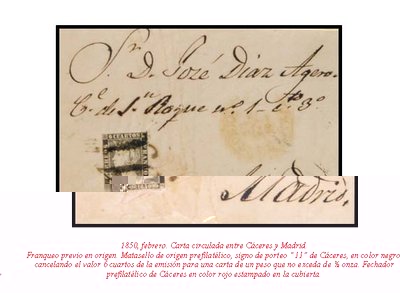 Sr. D. José Diaz Agero.
C.e de S.n Roque nº. 1 - c.to 3º
6 CUARTOS
Madrid.
1850, febrero. Carta circulada entre Cáceres y Madrid
Franqueo previo en origen. Matasello de origen prefilatélico, signo de porteo "11" de Cáceres, en color negro
cancelando el valor 6 cuartos de la emisión para una carta de un peso que no exceda de ½ onza. Fechador
prefilatélico de Cáceres en color rojo estampado en la cubierta